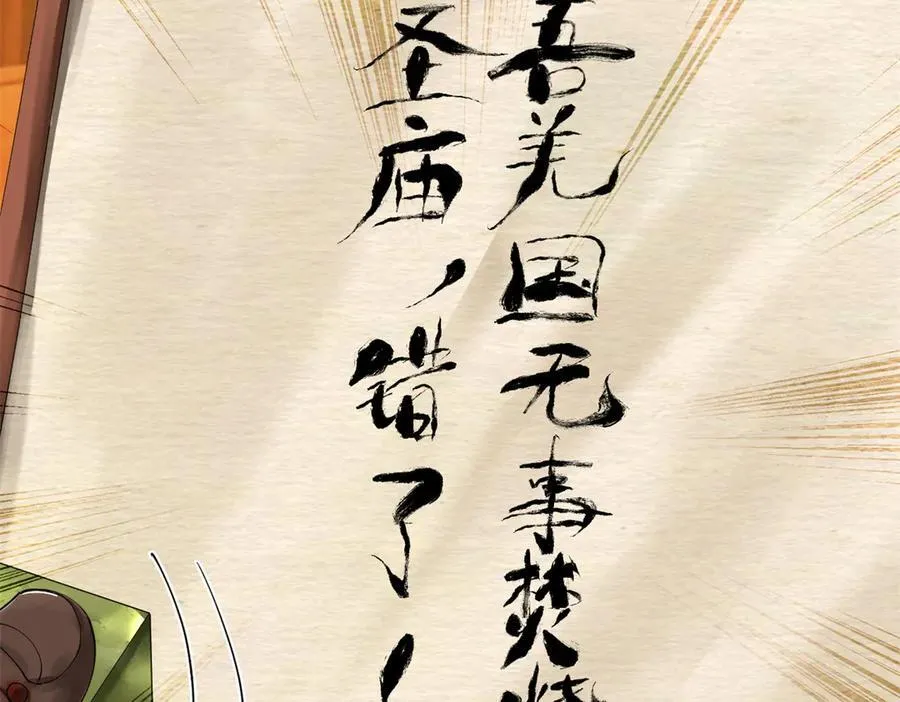 吾羌国无事焚烧
圣庙，错了！